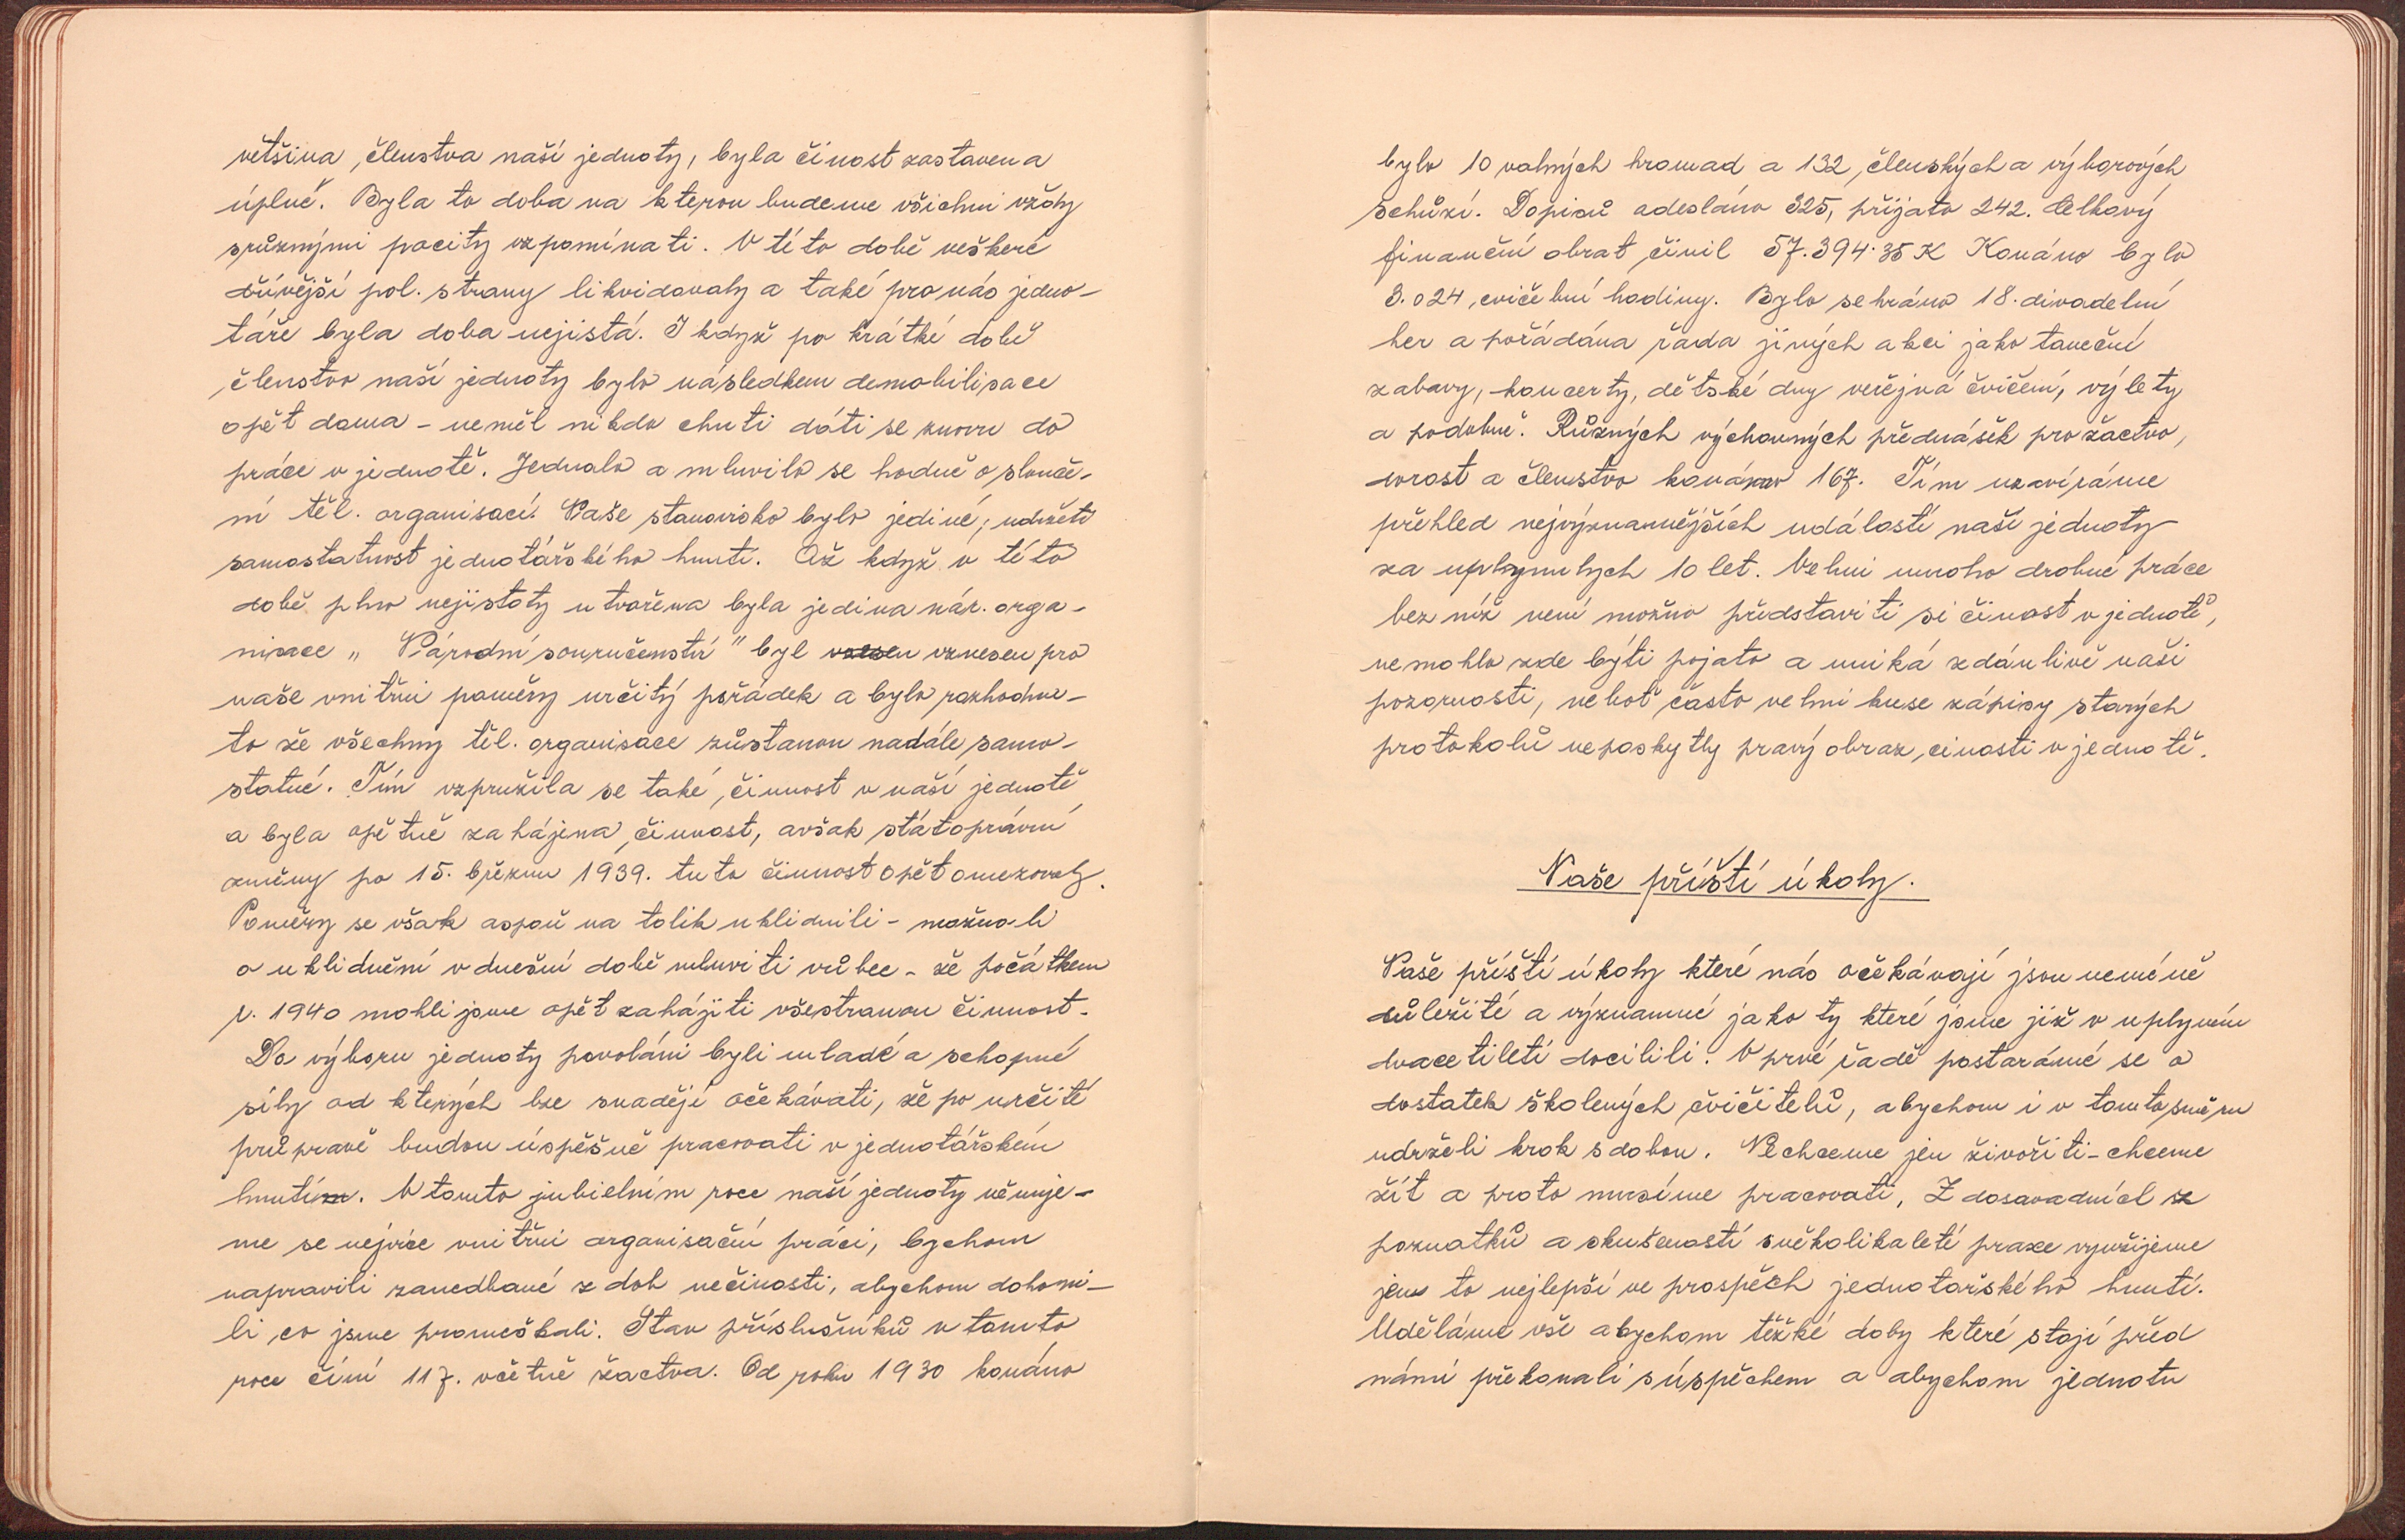 většina členstva naší jednoty, byla činost zastavena
úplně. Byla to doba na kterou budeme všichni vždy
srůznými pocity vzpomínati. V této době veškeré
dřívější pol. strany likvidovaly a také pro nás jedno-
táře byla doba nejistá. I když po krátké době
členstvo naší jednoty bylo následkem demobilisace
opět doma - neměl nikdo chuti dáti se znovu do
práce v jednotě. Jednalo a mluvilo se hodně o slouče-
ní těl. organisací. Naše stanovisko bylo jediné; udržeti
samostatnost jednotářského hnutí. Až když v této
době plno nejistoty utvořena byla jedina nár. orga-
nisace „Národní souručenství" byl vnesen vznesen pro
naše vnitřni poměry určitý pořádek a bylo rozhodnu-
to že všechny těl. organisace zůstanou nadále samo-
statné. Tím vzpružila se také činnost v naší jednotě
a byla opětně zahájena činnost, avšak státoprávní
změny po 15. březnu 1939. tuto činnost opět omezovaly.
Poměry se však aspoň na tolik uklidnili - možno-li
o uklidnění v dnešní době mluviti vůbec - že počátkem
r. 1940 mohli jsme opět zahájiti všestranou činnost.
Do výboru jednoty povoláni byli mladé a schopné
síly od kterých lze snadějí očekávati, že po určité
průpravě budou úspěšně pracovati v jednotářském
hnutím. V tomto jubielním roce naší jednoty věnuje-
me se nejvíce vnitřni organisační práci, bychom
napravili zanedbané z dob nečinosti, abychom dohoni-
li co jsme promeškali. Stav příslušníků v tomto
roce číní 117. včetně žactva. Od roku 1930 konáno
bylo 10 valných hromad a 132 členských a výborových
schůzí. Dopisů odesláno 325, přijato 242. Celkový
finanční obrat činil 57.394.35 K Konáno bylo
3.024 cvičební hodiny. Bylo sehráno 18. divadelní
her a pořádána řada jiných akci jako taneční
zabavy, koncerty, dětské dny veřejná čvičení, výlety
a podobně. Různých výchovných přednášek pro žactvo,
dorost a členstvo konáno 167. Tím uzavíráme
přehled nejvýznamnějších událostí naší jednoty
za uplynulych 10 let. Velmi mnoho drobné práce
bez níž není možno představiti si činost v jednotě,
nemohlo zde býti pojato a uniká zdánlivě naši
pozornosti, neboť často velmi kuse zápisy starých
protokolů neposkytly pravý obraz činosti v jednotě.
Naše příští úkoly.
Naše příští úkoly které nás očekávají jsou neméně
důležité a významné jako ty které jsme již v uplyném
dvacetiletí docilili. V prvé řadě postaráme se o
dostatek školených čvičitelů, abychom i v tomto směru
udrželi krok s dobou. Nechceme jen živořiti - chceme
žít a proto musíme pracovati, Z dosavadních
poznatků a skušeností několikaletí praxe využijeme
jen to nejlepší ve prospěch jednotařského hnutí.
Uděláme vše abychom těžké doby které stojí před
námi překonali súspěchem a abychom jednotu